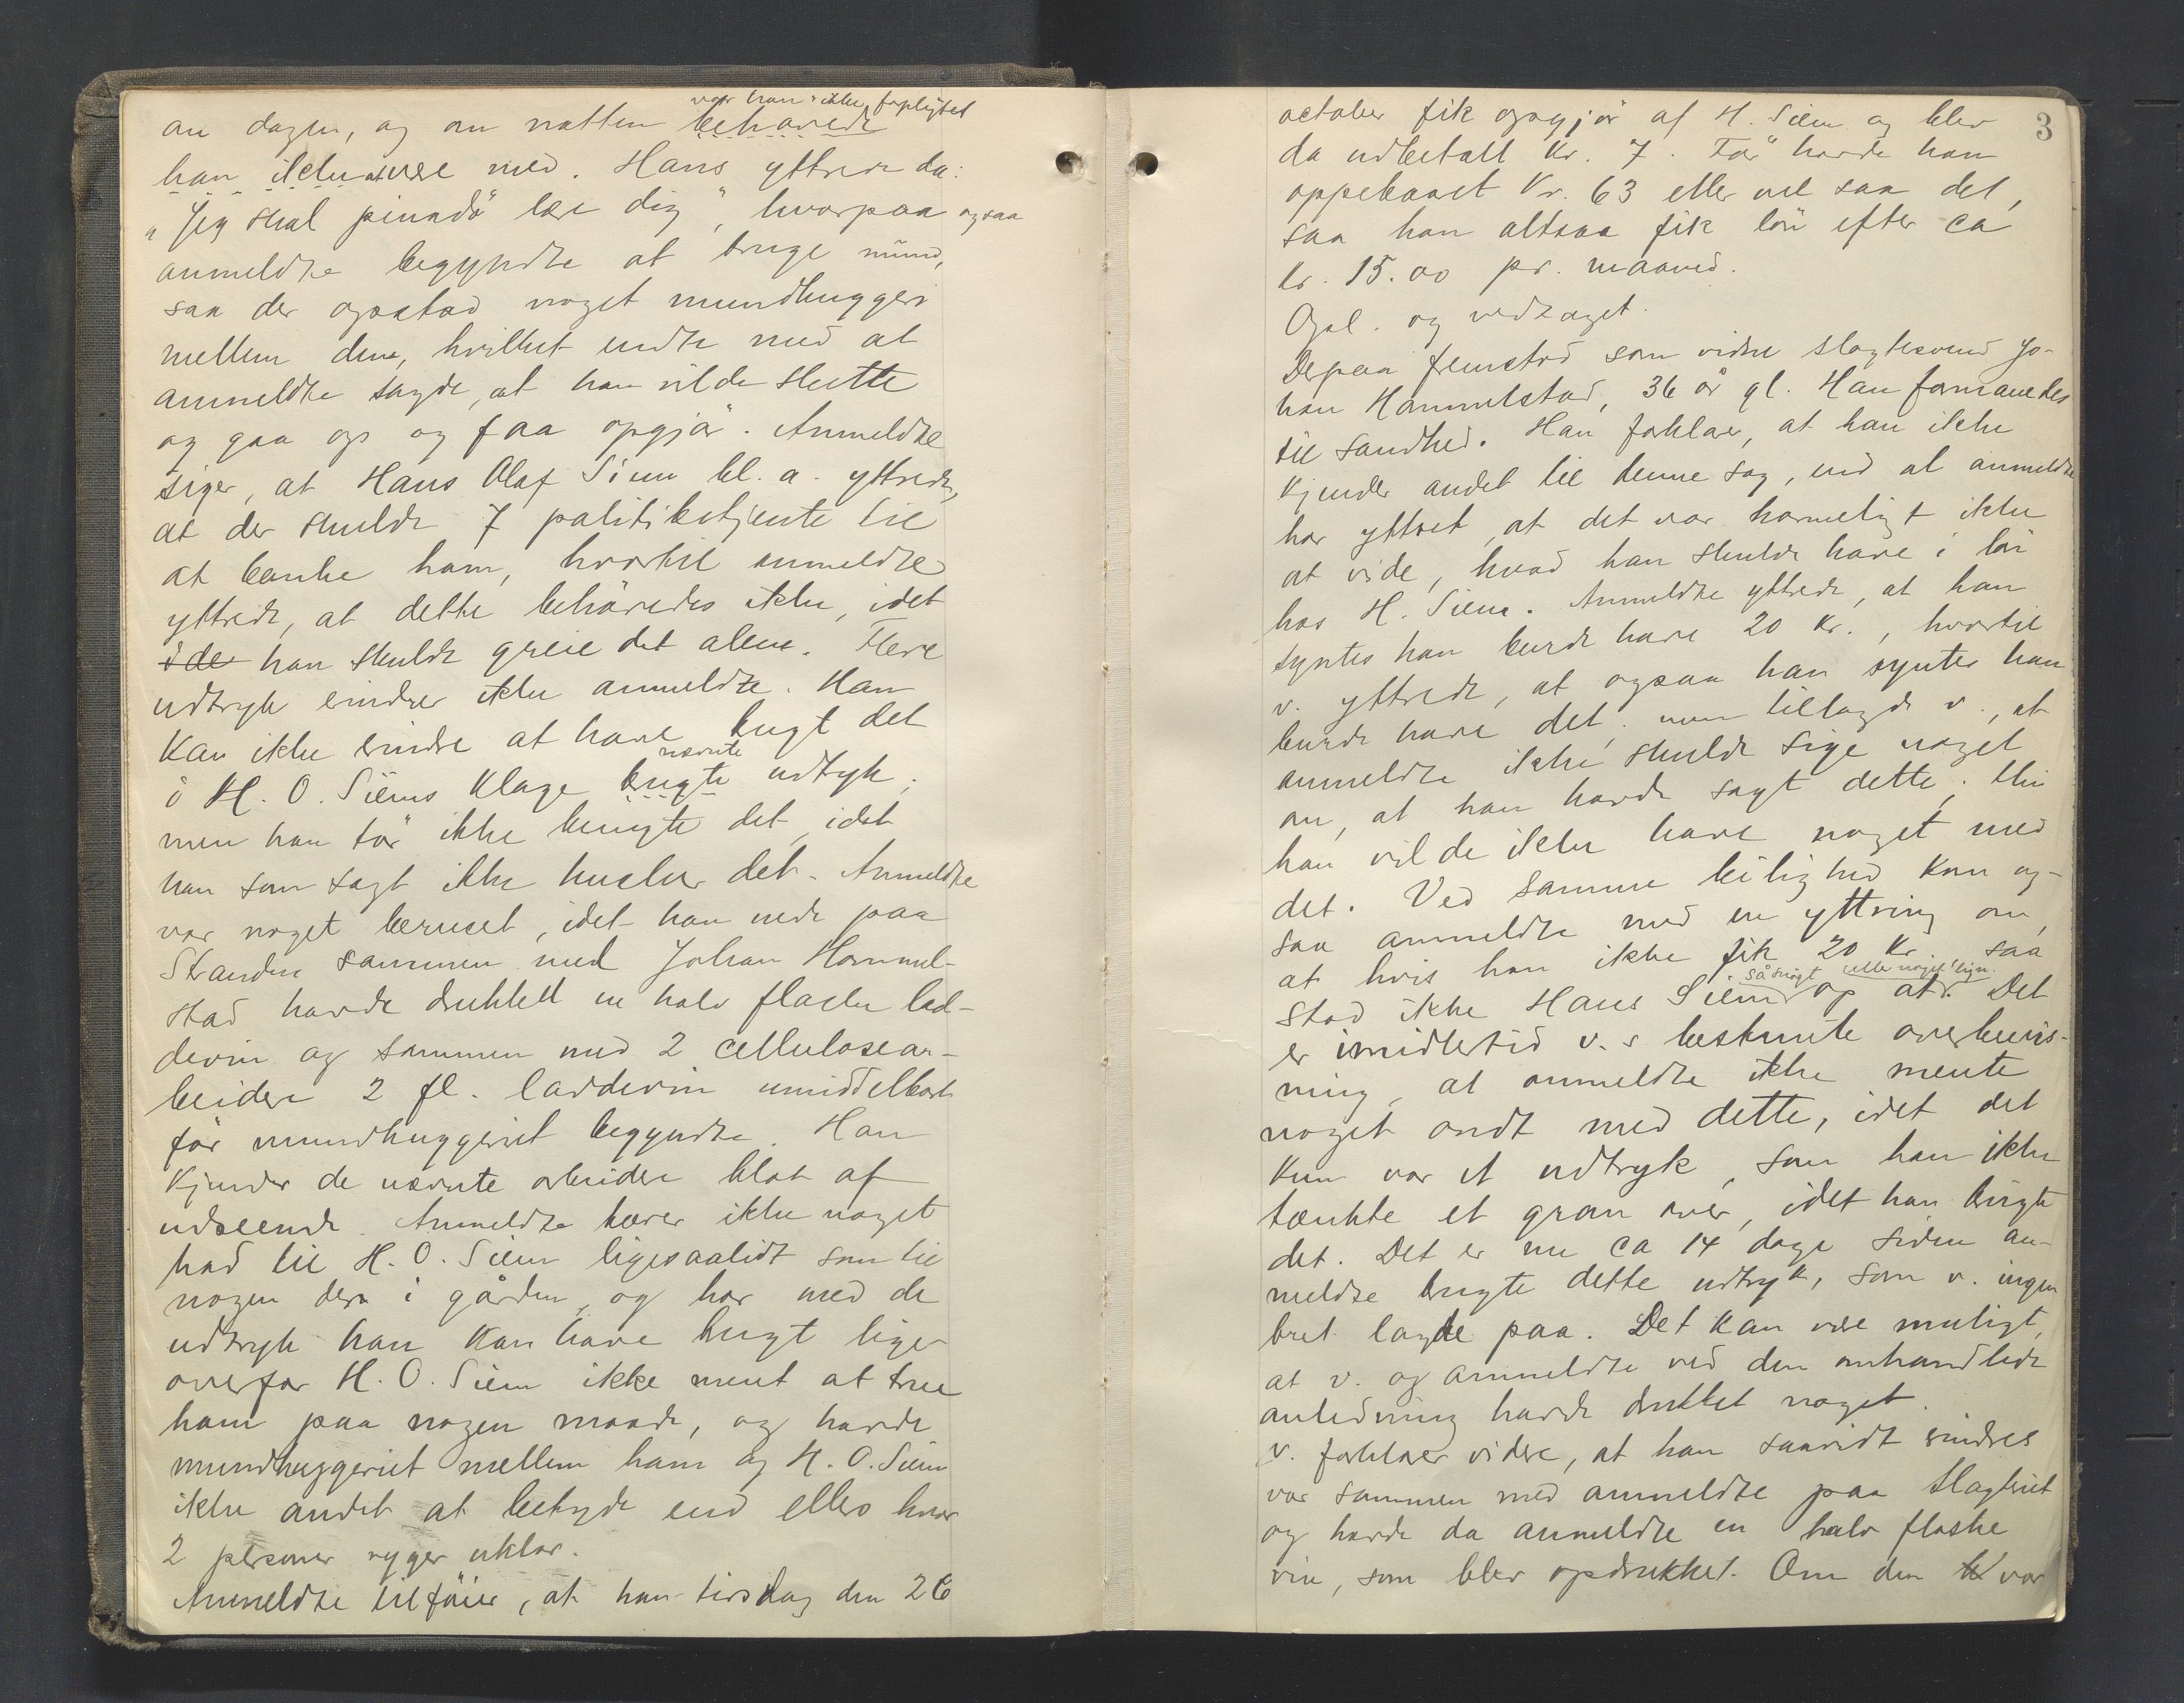 om dagen, og om natten behøvede var han ikke forpligtet
han ikke at være med. Hans yttrer da:
"Jeg skal pinadø lære dig", hvorpaa ogsaa
anmeldte begyndte at bruge mund,
saa der opstod noget mundhuggeri
mellem dem, hvilket endte med at
anmeldte sagde, at han vilde slutte
og gaa op og faa opgjør. Anmeldte
siger, at Hans Olaf Siem bl. a. yttrede,
at der skulde 7 politibetjente til
at banke ham, hvortil anmeldte
yttrede, at dette behøvedes ikke, idet
ide han skulde greie det alene. Flere
udtryk erindrer ikke anmeldte. Han
kan ikke erindre at have brugt det
i H. O. Siems klage brugte nævnte udtryk,
men han tør ikke benegte det, idet
han som sagt ikke husker det. Anmeldte
var noget beruset, idet han nede paa
Stranden sammen med Johan Hammel-
stad havde drukket en halv flaske lad-
devin og sammen med 2 cellulosear-
beidere 2 fl. laddevin umiddelbart
før mundhuggeriet begyndte. Han
kjender de nævnte arbeidere blot af
udseende. Anmeldte bærer ikke noget
had til H. O. Siem ligesaalidt som til
nogen der i gården, og har med de
udtryk han kan have brugt lige-
overfor H. O. Siem ikke ment at true
ham paa nogen maade, og havde
mundhuggeriet mellem ham og H. O. Siem
ikke andet at betyde end ellers hvor
2 personer ryger uklar.
Anmeldte tilføier, at han tirsdag den 26
3
october fik opgjør af H. Siem og blev
da udbetalt Kr. 7. Før havde han
oppebaaret Kr. 63 eller vel saa det,
saa han altsaa fik løn efter ca
Kr. 15.00 pr. maaned.
Opl. og vedtaget.
Derpaa fremstod som vidne slagtesvend Jo-
han Hammelstad, 36 år gl. Han formanedes
til sandhed. Han forklarer, at han ikke
kjender andet til denne sag, end at anmeldte
har yttret, at det var harmeligt ikke
at vide, hvad han skulde have i løn
hos H. Siem. Anmeldte yttrede, at han
syntes han burde have 20 kr., hvortil
v. yttrede, at ogsaa han syntes han
burde have det, men tillagde v., at
anmeldte ikke skulde sige noget
om, at han havde sagt dette, thi
han vilde ikke have noget med
det. Ved samme leilighed kom og-
saa anmeldte med en yttring om,
at hvis han ikke fik 20 kr. saa
stod ikke Hans Siem så snart op att eller noget lign. Det
er imidlertid v.s bestemte overbevis-
ning, at anmeldte ikke mente
noget ondt med dette, idet det
kun var et udtryk, som han ikke
tænkte et gran over, idet han brugte
det. Det er nu ca 14 dage siden an-
meldte brugte dette udtryk, som v. ingen
bret lagde paa. Det kan være muligt,
at v. og anmeldte ved den omhandlede
anledning havde drukket noget.
v. forklarer videre, at han saavidt erindres
var sammen med anmeldte paa slagteriet
og havde da anmeldte en halv flaske
vin, som blev opdrukket. Om den var